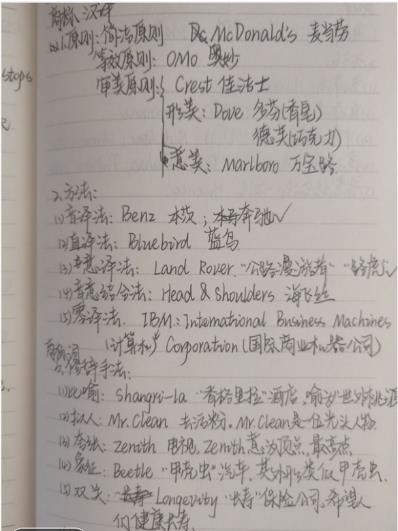 商标 汉译
1.原则: 简洁原则 McDonald's 麦当劳
等效原则: OMO 奥妙
审美原则: Crest 佳洁士
形美: Dove 多芬(香皂)
德芙(巧克力)
意美: Marlboro 万宝路
2.方法:
(1)音译法: Benz 本茨; 奔驰✓
(2)直译法: Bluebird 蓝鸟
(3)意译法: Land Rover "公路漫游者" "路虎"✓
(4)音意结合法: Head & Shoulders 海飞丝
(5)零译法: IBM: International Business Machines
(计算机) Corporation (国际商业机器公司)
商标词
3.修辞手法:
(1)比喻: Shangri-la "香格里拉"酒店,喻为"世外桃源
(2)拟人: Mr.Clean 去污粉. Mr.Clean是一位光头人物
(3)夸张: Zenith 电视, Zenith意为顶点,最高点
(4)象征: Beetle "甲壳虫"汽车,其外形类似甲壳虫.
(5)双关: Longevity "长寿"保险公司,希望人
们健康长寿.
stops